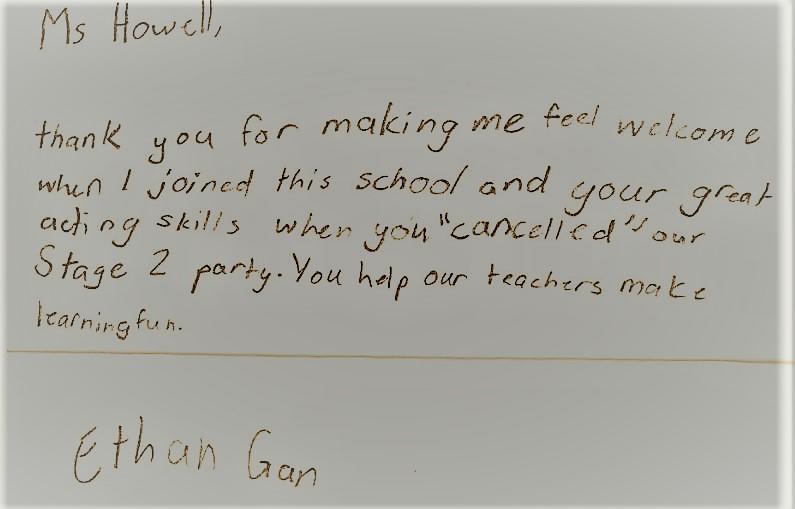 Ms Howell,
thank you for making me feel welcome
when I joined this school and your great
acting skills when you "cancelled" our
Stage 2 party. You help our teachers make
learning fun.
Ethan Gan